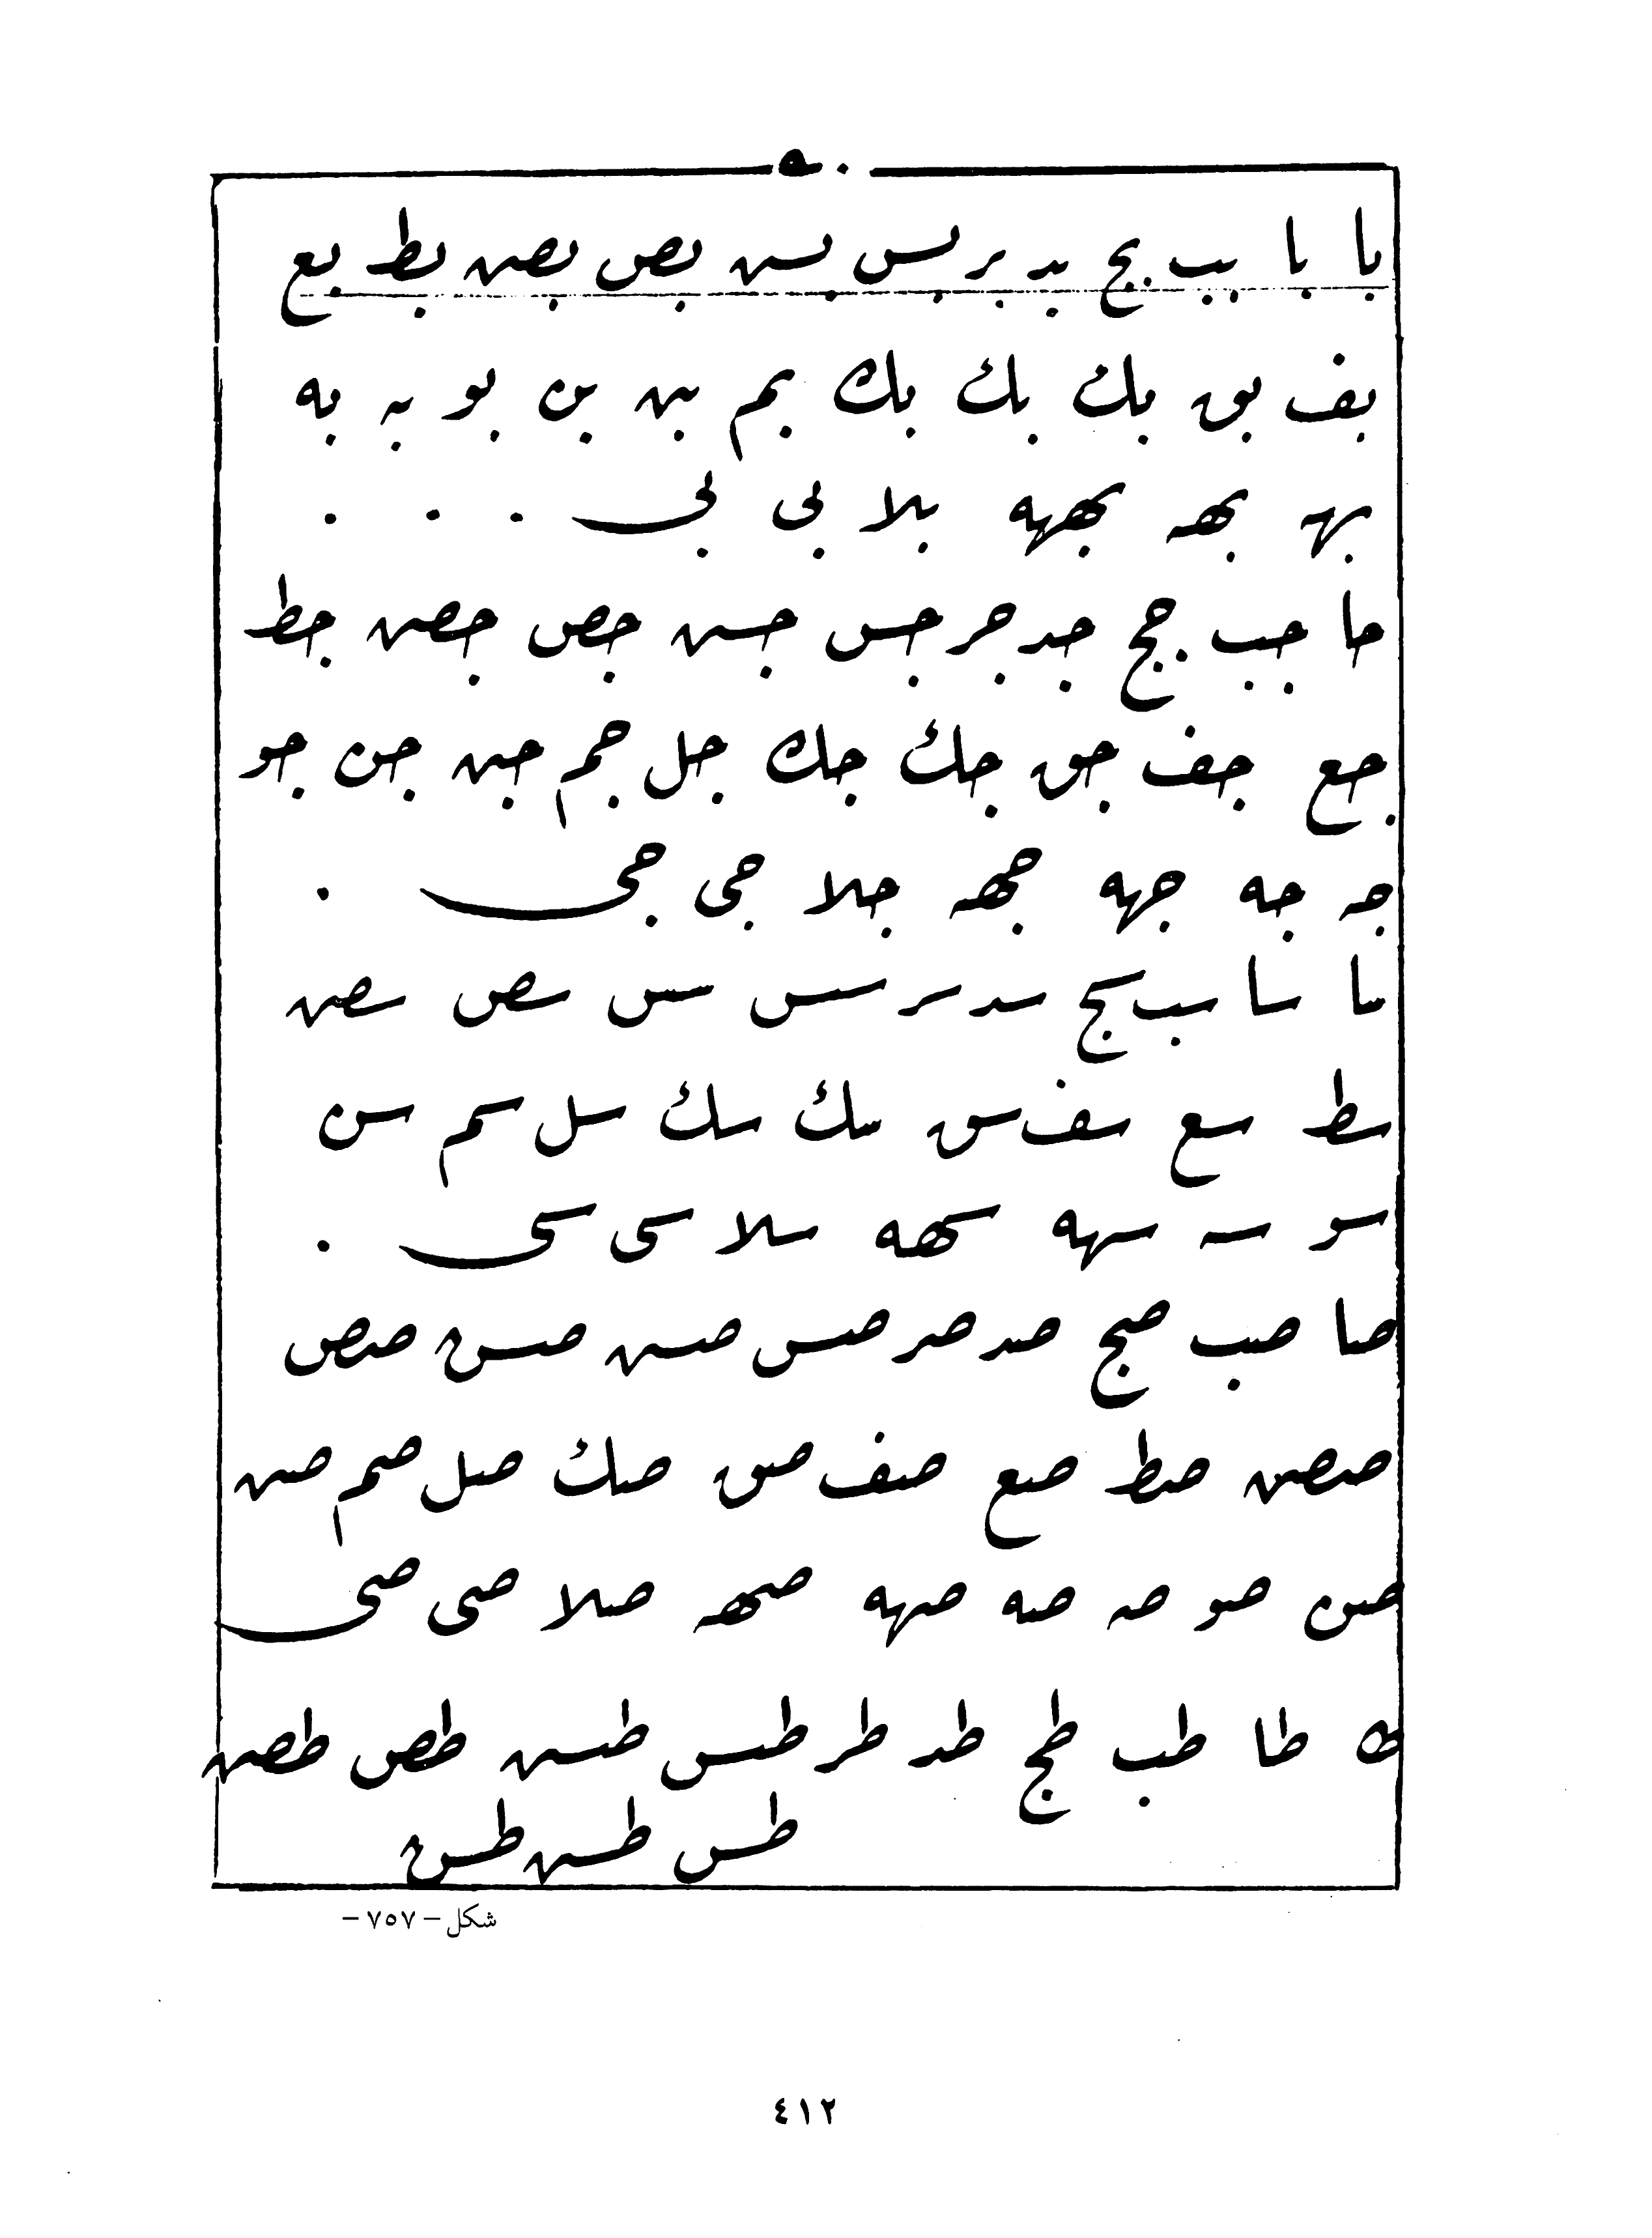 با با بب بج بد بر بس بس بص بص بط بع
بف بق بك بك بك بم بن بن بو به به
بها بهه بلا بى بى . . .
جا جب جج جد جر جس جس جص جص جط
جع جف جق جك جك جل جم جن جن جو
جه جه جهه جهه جلا جى جى .
سا سا سب سج سد سر سس سس سص سص
سط سع سف سق سك سك سل سم سن
سو سه سهه سهه سلا سى سى .
صا صب صج صد صر صس صس صس صص
صص صط صع صف صق صك صل صم صن
صن صو صه صه صهه صهه صلا صى صى
طا طب طج طد طر طس طس طص طص
طس طس طس
شكل - ٧٥٧ -
٤١٢